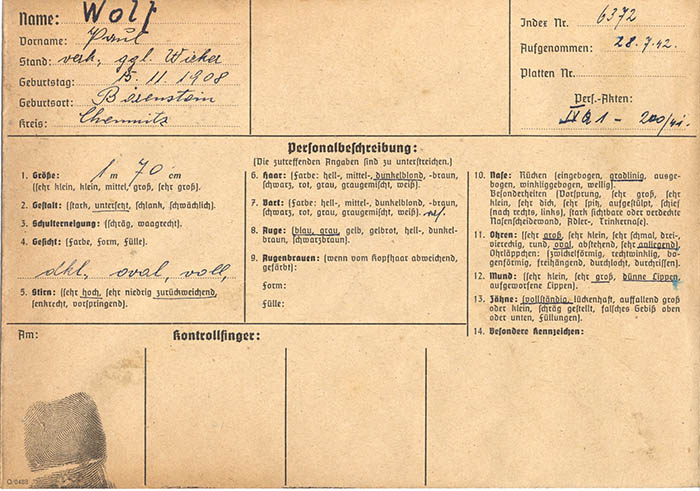 Name: Wolf
Vorname: Paul
Stand: verh, ggl. Wicker
Geburtstag: 15. 11. 1908
Geburtsort: Bärenstein
Kreis: Chemnitz
Index Nr. 6372
Aufgenommen: 28.7.42.
Platten Nr.
Pers.-Akten:
Personalbeschreibung:
(Die zutreffenden Angaben sind zu unterstreichen.)
1. Größe: 1 m 70 cm
(sehr klein, klein, mittel, groß, sehr groß).
2. Gestalt: (stark, untersetzt, schlank, schwächlich).
3. Schulterneigung: (schräg, waagrecht).
4. Gesicht: (Farbe, Form, Fülle).
dkl, oval, voll,
5. Stirn: (sehr hoch, sehr niedrig zurückweichend,
senkrecht, vorspringend).
6. Haar: (Farbe: hell-, mittel-, dunkelblond, -braun,
schwarz, rot, grau, graugemischt, weiß).
7. Bart: (Farbe: hell-, mittel-, dunkelblond, -braun,
schwarz, rot, grau, graugemischt, weiß).
8. Auge: (blau, grau, gelb, gelbrot, hell-, dunkel-
braun, schwarzbraun).
9. Augenbrauen: (wenn vom Kopfhaar abweichend,
gefärbt):
Form:
Fülle:
10. Nase: Rücken (eingebogen, gradlinig, ausge-
bogen, winkliggebogen, wellig).
Besonderheiten (Vorsprung, sehr groß, sehr
klein, sehr dick, sehr spitz, aufgestülpt, schief
(nach rechts, links), stark sichtbare oder verdeckte
Nasenscheidewand, Adler-, Trinkernase).
11. Ohren: (sehr groß, sehr klein, sehr schmal, drei-,
viereckig, rund, oval, abstehend, sehr anliegend).
Ohrläppchen: (zwickelförmig, rechtwinklig, bo-
genförmig, freihängend, durchlocht, durchrissen).
12. Mund: (sehr klein, sehr groß, dünne Lippen,
aufgeworfene Lippen).
13. Zähne: (vollständig, lückenhaft, auffallend groß
oder klein, schräg gestellt, falsches Gebiß oben
oder unten, Füllungen).
14. Besondere Kennzeichen:
Am:
Kontrollfinger: